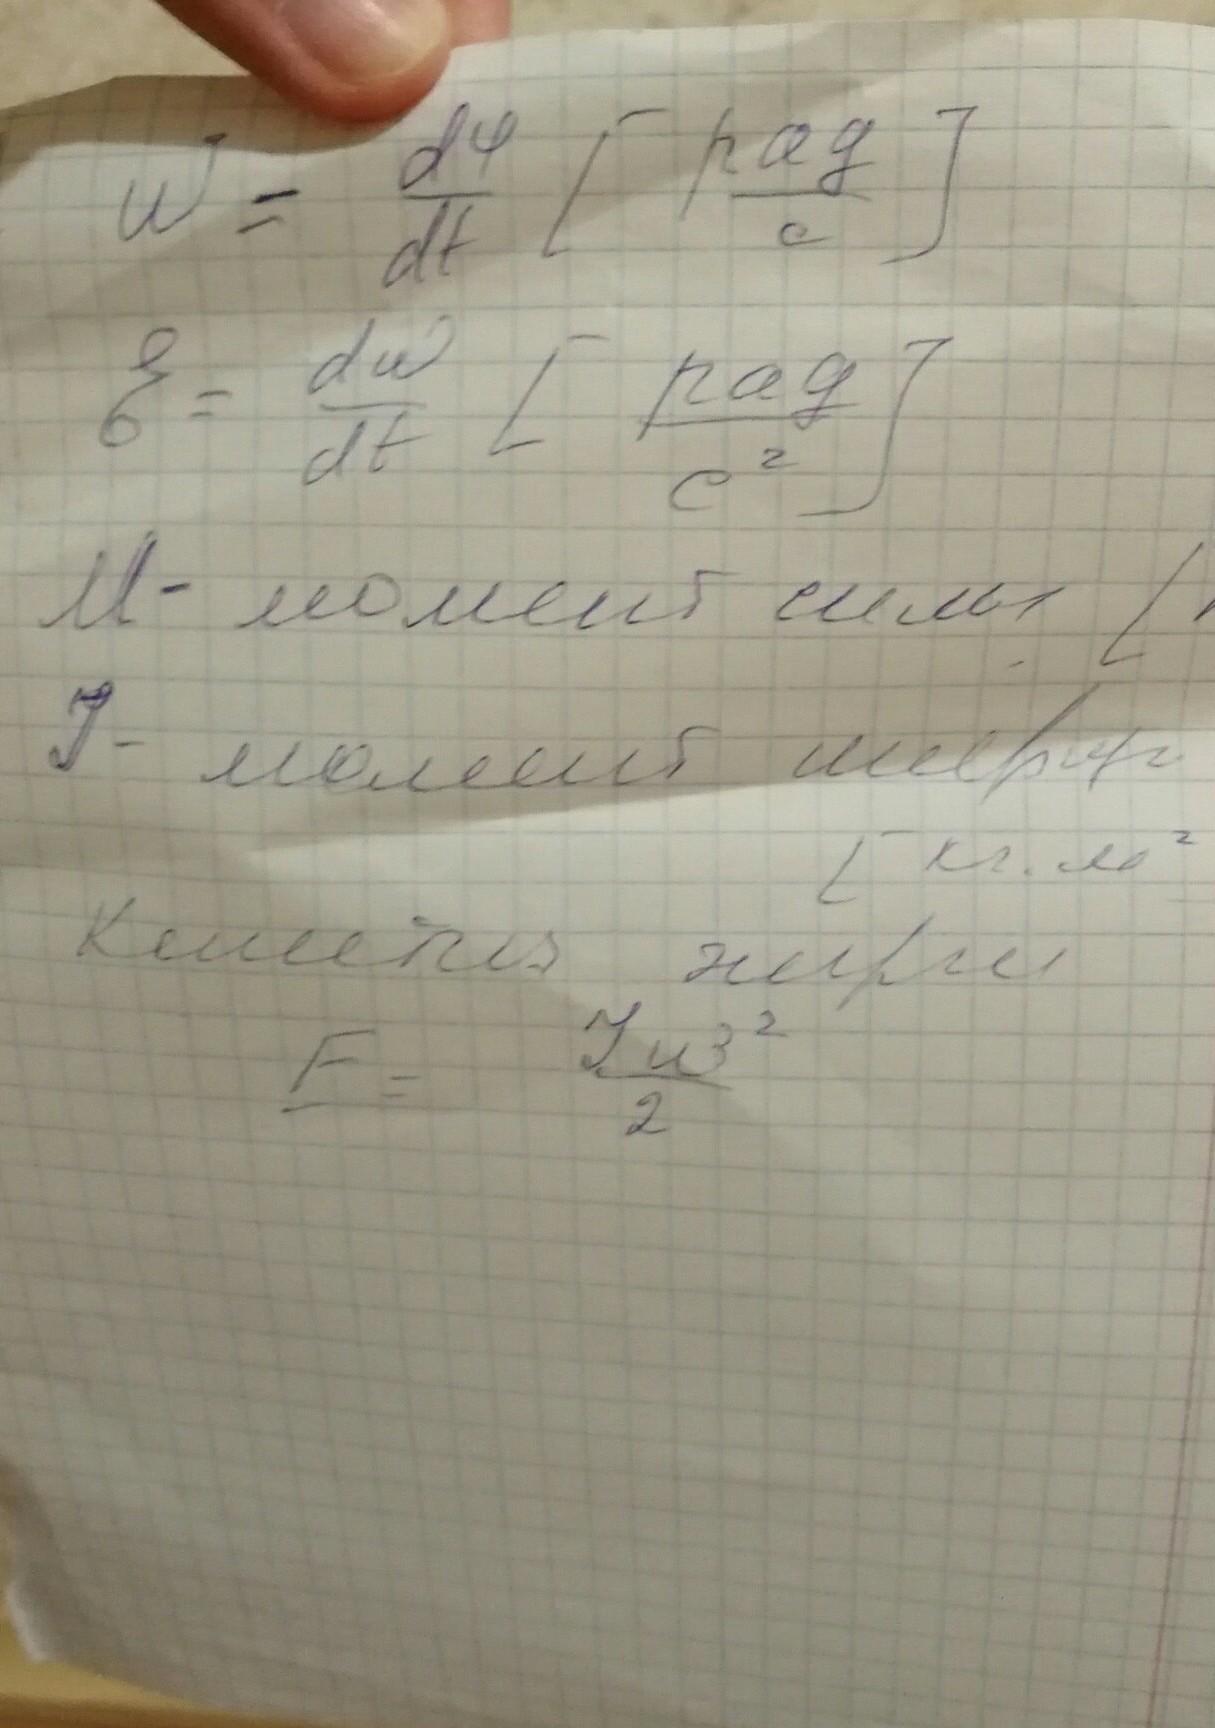 ω = dφ/dt [рад/с]
ε = dω/dt [рад/с²]
M - момент силы [
J - момент инерци
[кг.м²
Кинетич энерги
E = Jω²/2